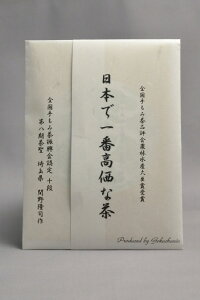 全国手もみ茶品評会農林水産大臣賞受賞
日本で一番高価な茶
全国手もみ茶振興会認定 十段
第八期茶聖 埼玉県 間野隆司作
Produced by Gokachanin